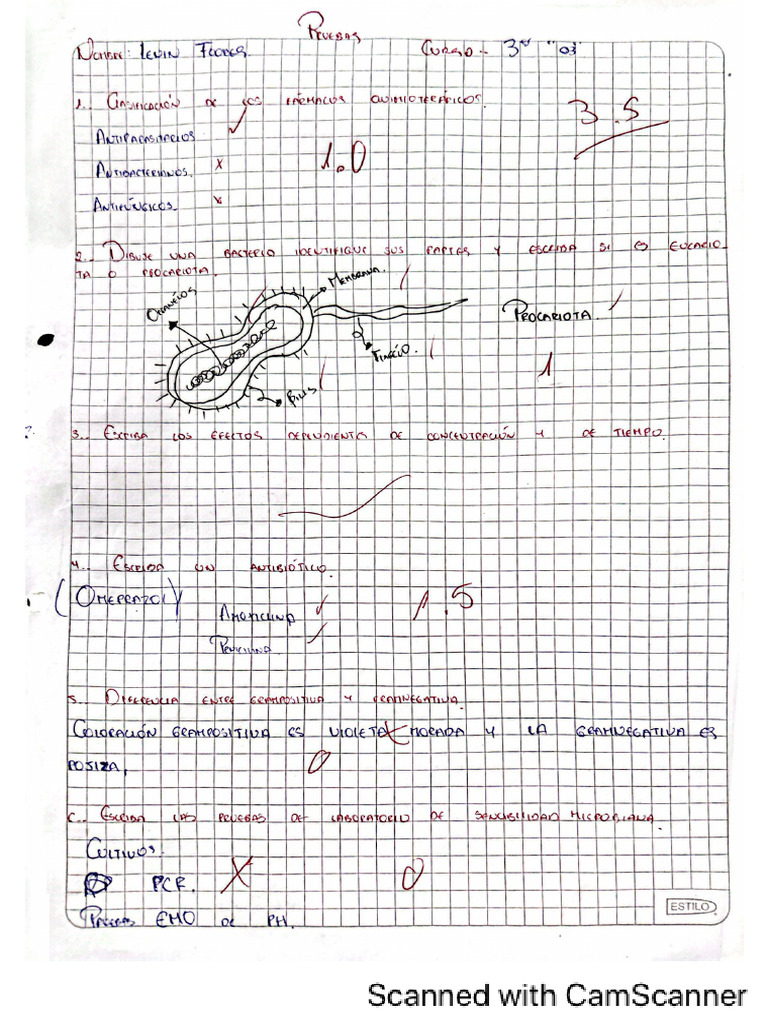 PRUEBAS
NOMBRE: LENIN FLORES. CURSO - 3º "03"
1.. CLASIFICACIÓN DE LOS FÁRMACOS QUIMIOTERÁPICOS.
3.5
ANTIPARASITARIOS
ANTIBACTERIANOS. X
1.0
ANTIFÚNGICOS x
2.. DIBUJE UNA BACTERIA IDENTIFIQUE SUS PARTES Y ESCRIBA SI ES EUCARIO
TA O PROCARIOTA.
MEMBRANA.
PROCARIOTA.
PILIS
1
3.. ESCRIBA LOS EFECTOS DEPENDIENTES DE CONCENTRACIÓN Y DE TIEMPO.
4.. ESCRIBA UN ANTIBIÓTICO.
(OMEPRAZOL)
1.5
5.. DIFERENCIA ENTRE GRAMPOSITIVA Y GRAMNEGATIVA.
COLORACIÓN GRAMPOSITIVA ES VIOLETA MORADA Y LA GRAMNEGATIVA ES
0
6.. ESCRIBA LAS PRUEBAS DE LABORATORIO DE SENSIBILIDAD MICROBIANA.
CULTIVOS.
PCR. X 0
PRUEBAS EMO DE PH.
ESTILO
Scanned with CamScanner